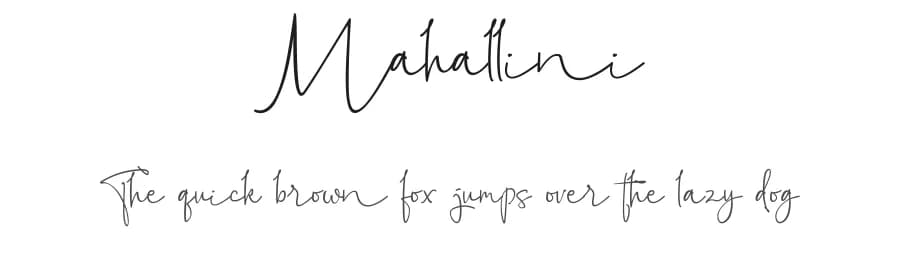 Mahallini
The quick brown fox jumps over the lazy dog